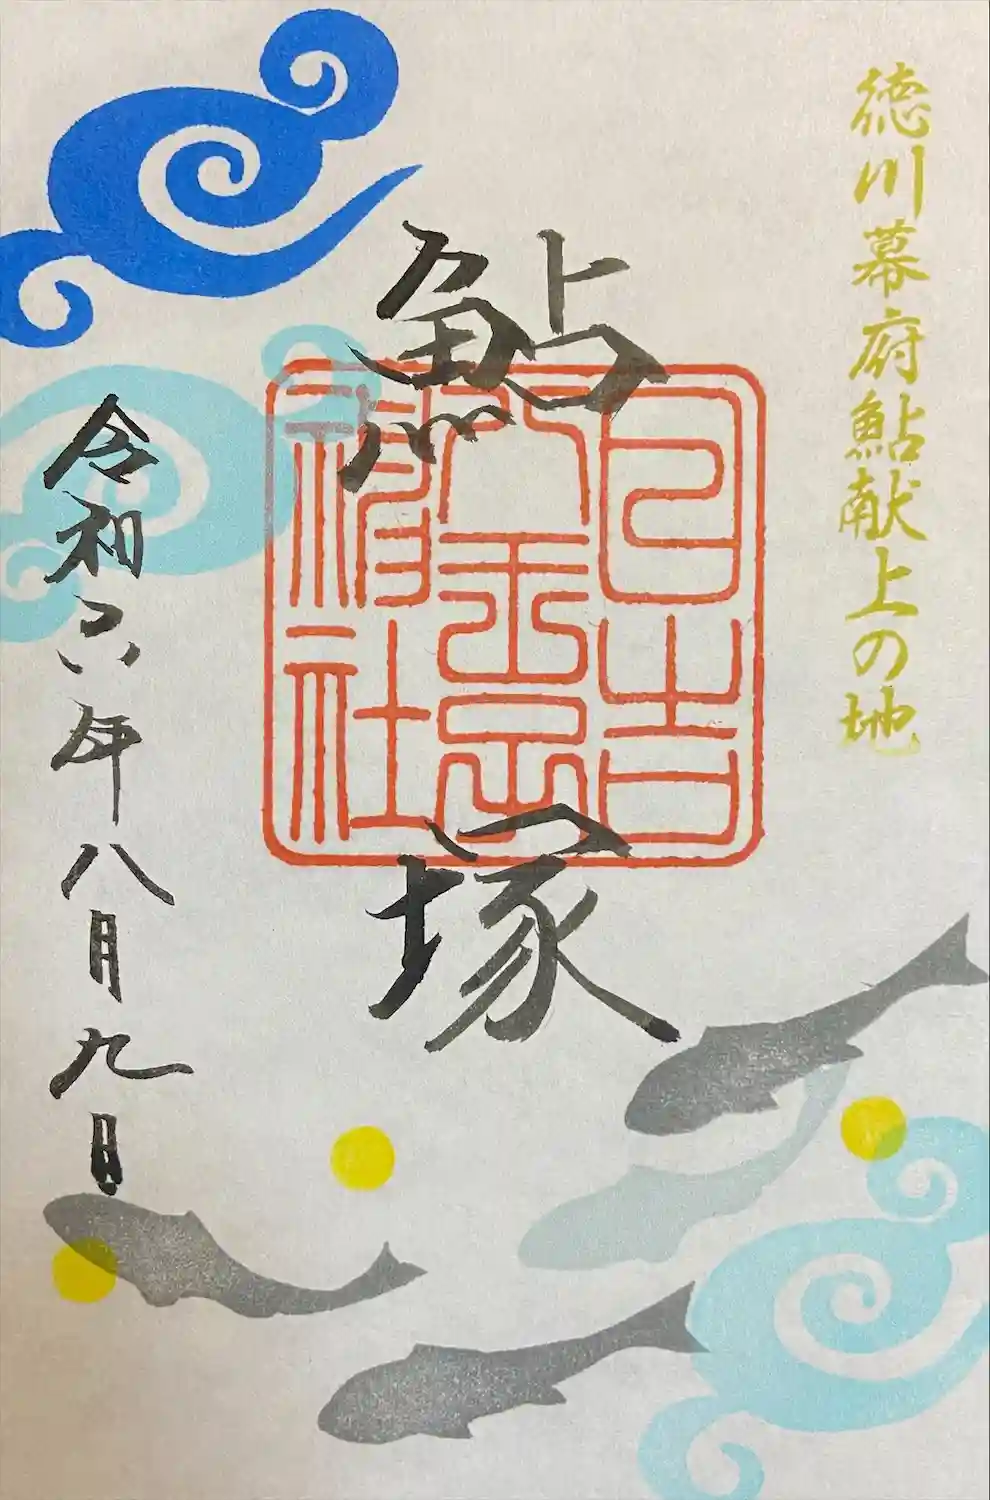 徳川幕府鮎献上の地
鮎塚
日吉
神社
令和六年八月九日